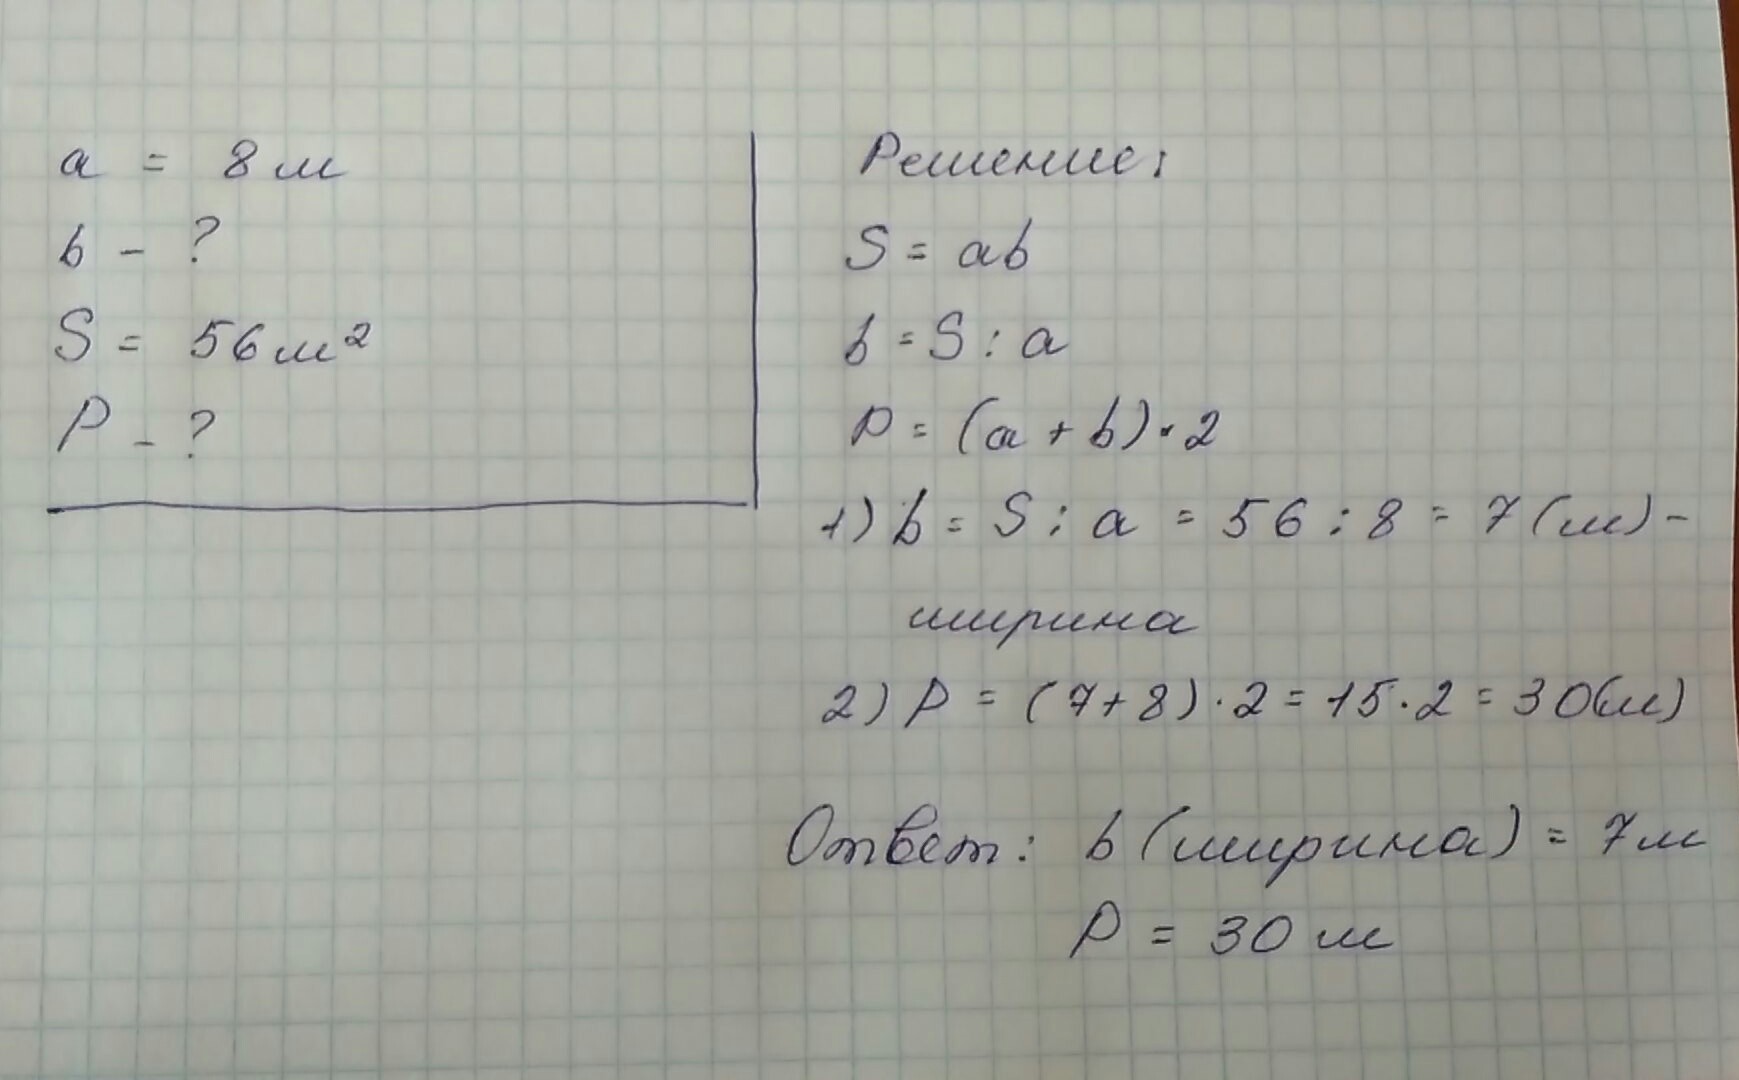 a = 8 м
b - ?
S = 56 м²
P - ?
Решение:
S = ab
b = S : a
P = (a + b) · 2
1) b = S : a = 56 : 8 = 7 (м) -
ширина
2) P = (7 + 8) · 2 = 15 · 2 = 30 (м)
Ответ: b (ширина) = 7 м
P = 30 м